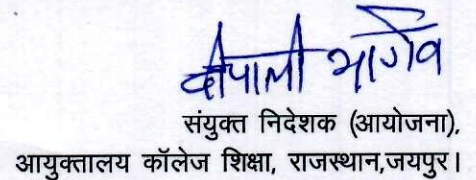 दीपाली भार्गव
संयुक्त निदेशक (आयोजना),
आयुक्तालय कॉलेज शिक्षा, राजस्थान,जयपुर।